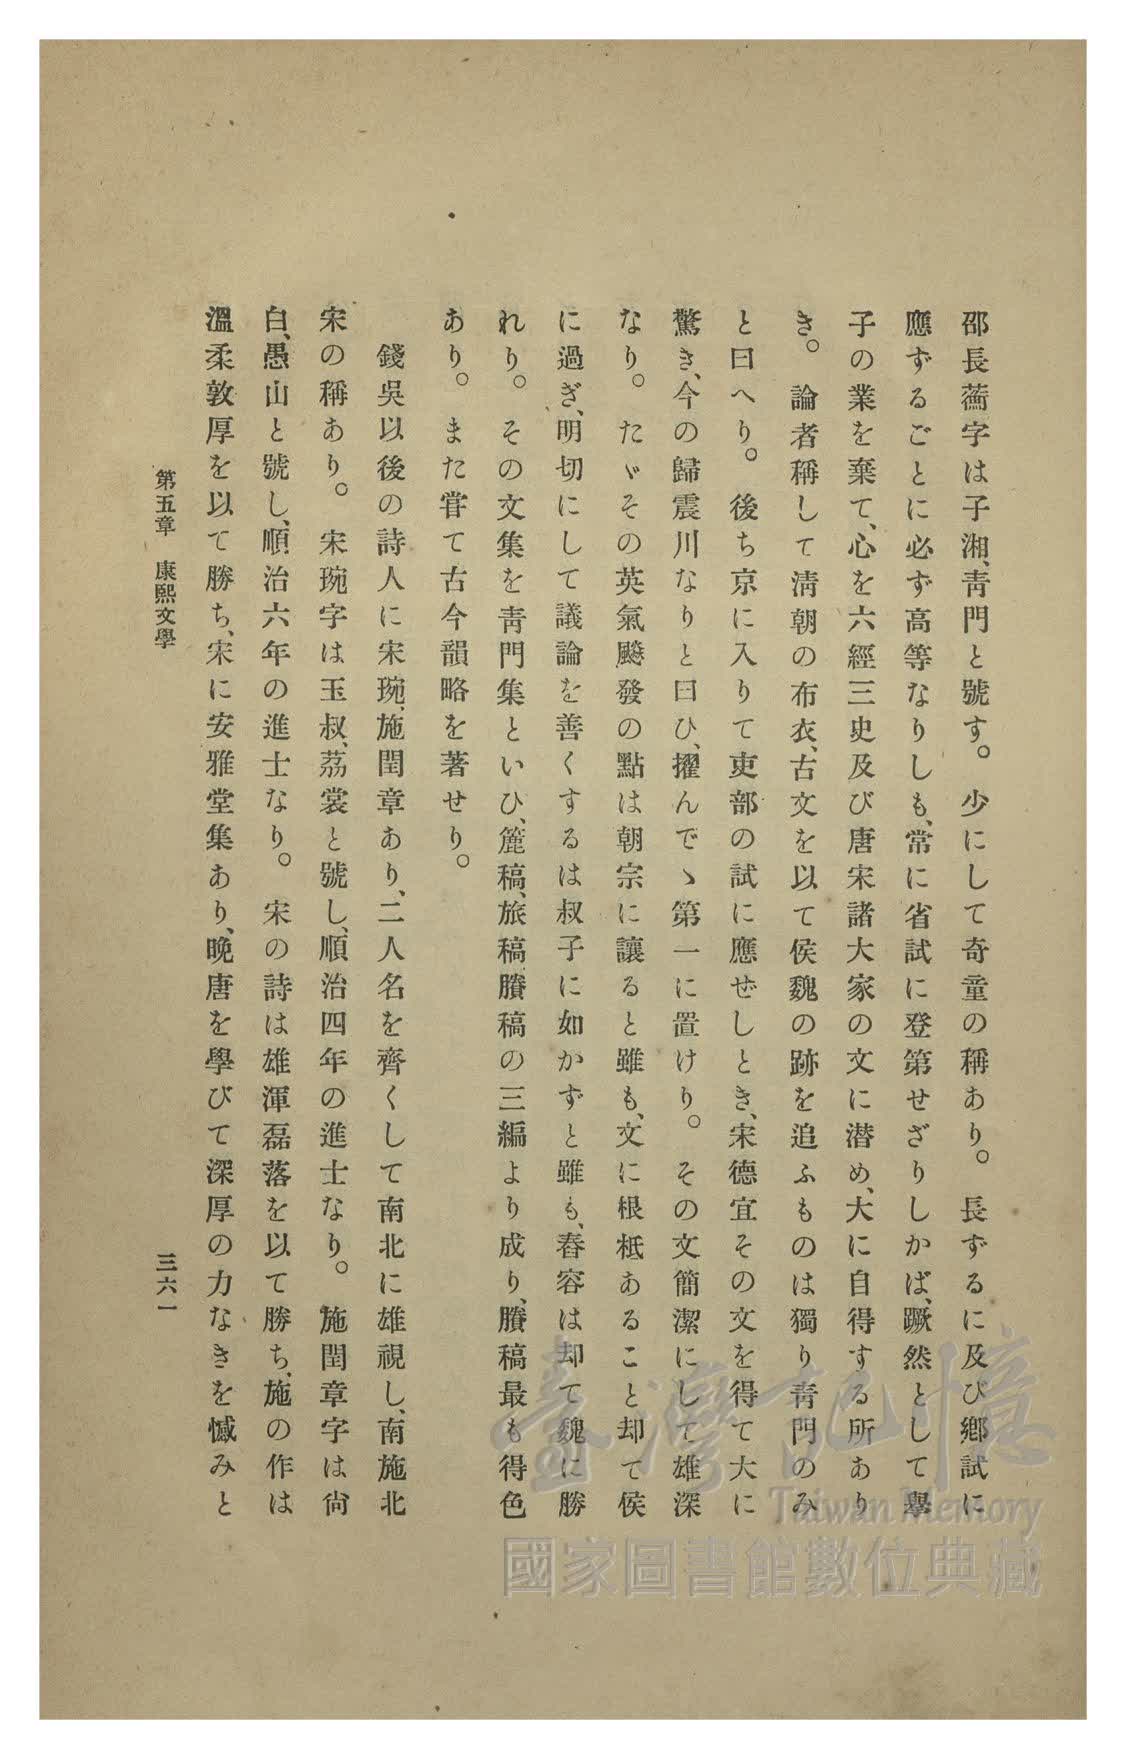 邵長蘅字は子湘、靑門と號す。少にして奇童の稱あり。長ずるに及び鄕試に
應ずるごとに必ず高等なりしも、常に省試に登第せざりしかば、蹶然として擧
子の業を棄て、心を六經三史及び唐宋諸大家の文に潜め、大に自得する所あり
き。論者稱して淸朝の布衣、古文を以て侯魏の跡を追ふものは獨り靑門のみ
と曰へり。後ち京に入りて吏部の試に應ぜしとき、宋德宜その文を得て大に
驚き、今の歸震川なりと曰ひ、擢んでゝ第一に置けり。その文簡潔にして雄深
なり。たゞその英氣飈發の點は朝宗に讓ると雖も、文に根柢あること却て侯
に過ぎ、明切にして議論を善くするは叔子に如かずと雖も、舂容は却て魏に勝
れり。その文集を靑門集といひ、簏稿、旅稿、賸稿の三編より成り、賸稿最も得色
あり。また甞て古今韻略を著せり。
錢吳以後の詩人に宋琬、施閏章あり、二人名を齊くして南北に雄視し、南施北
宋の稱あり。宋琬字は玉叔、荔裳と號し、順治四年の進士なり。施閏章字は尙
白、愚山と號し、順治六年の進士なり。宋の詩は雄渾磊落を以て勝ち、施の作は
溫柔敦厚を以て勝ち、宋に安雅堂集あり、晚唐を學びて深厚の力なきを憾みと
第五章 康熙文學
三六一
臺灣記憶
Taiwan Memory
國家圖書館數位典藏